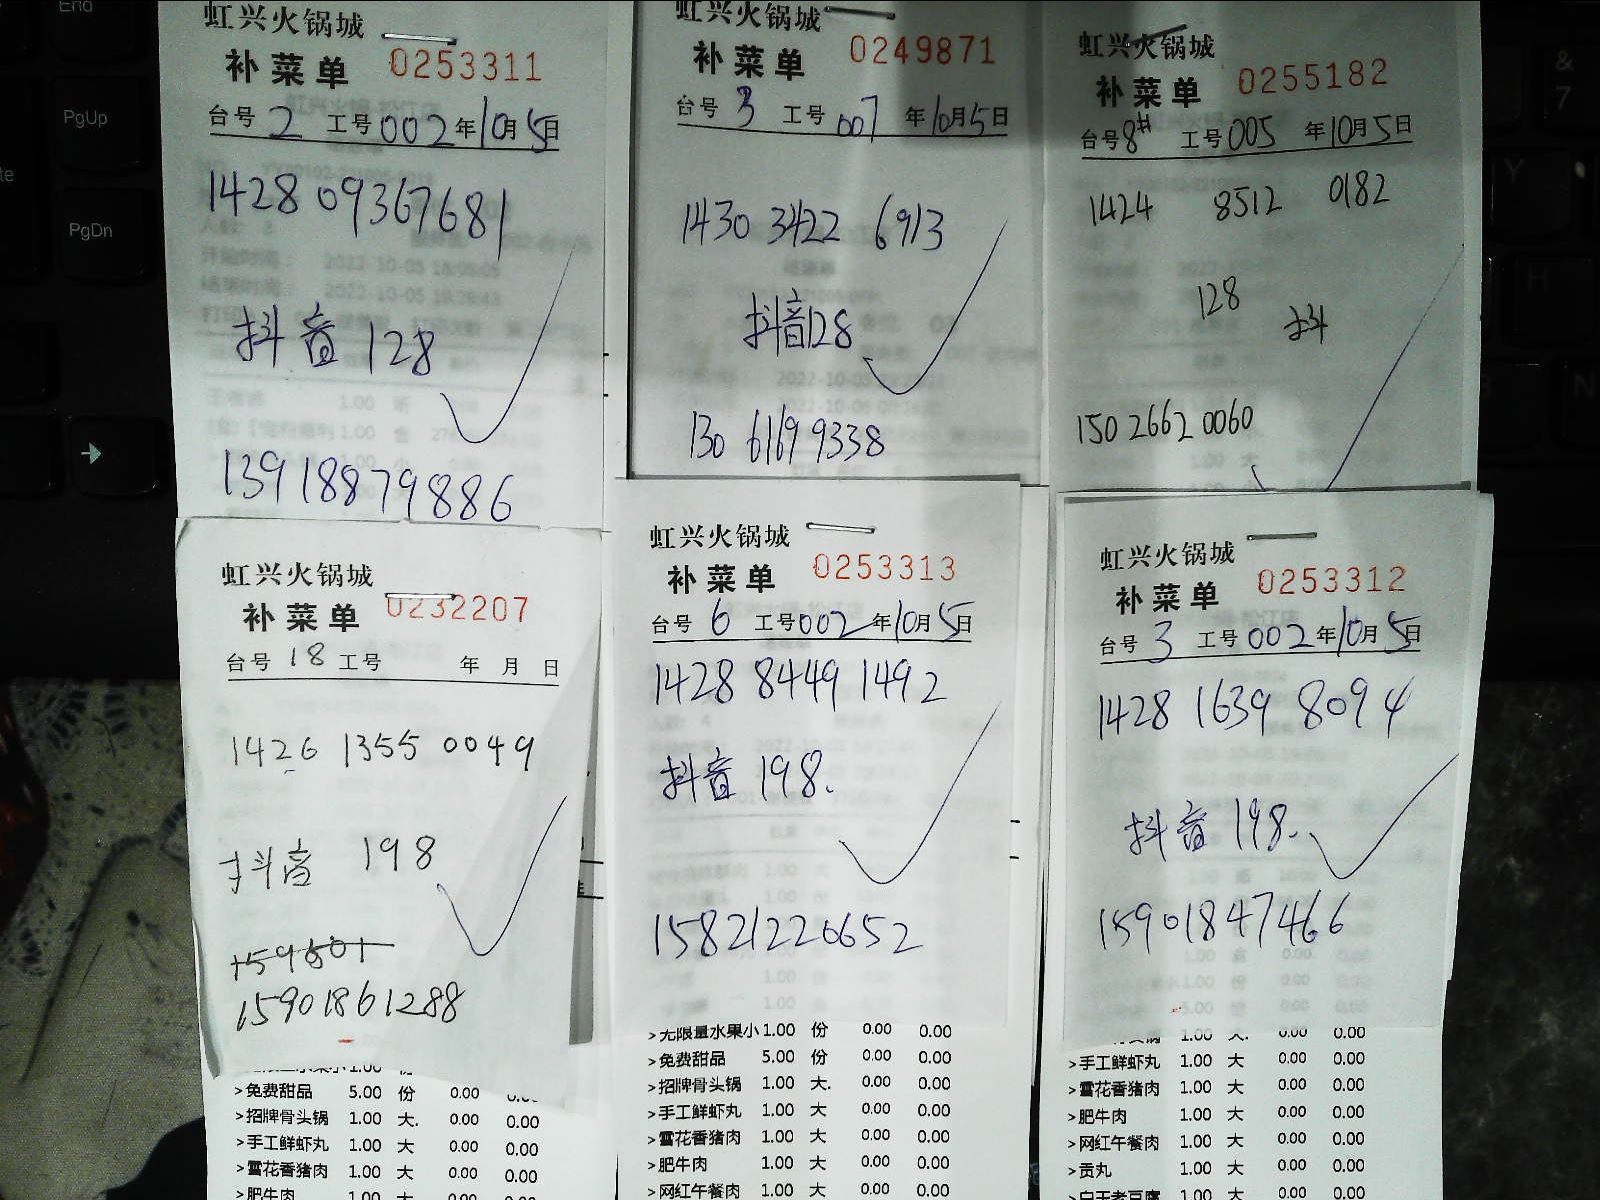 虹兴火锅城
补菜单 0253311
台号 2 工号 002 年 10 月 5 日
1428 09367681
抖音 128
13918879886
虹兴火锅城
补菜单 0249871
台号 3 工号 007 年 10 月 5 日
1430 3422 6913
抖音 128
130 6169 9338
虹兴火锅城
补菜单 0255182
台号 8# 工号 005 年 10 月 5 日
1424 8512 0182
128
抖
150 2662 0060
虹兴火锅城
补菜单 0232207
台号 18 工号 年 月 日
1426 1355 0049
抖音 198
15901861288
>免费甜品 5.00 份 0.00
>招牌骨头锅 1.00 大. 0.00 0.00
>手工鲜虾丸 1.00 大 0.00 0.00
>雪花香猪肉 1.00 大 0.00 0.00
>肥牛肉 1.00 大 0.00 0.00
虹兴火锅城
补菜单 0253313
台号 6 工号 002 年 10 月 5 日
1428 8449 1492
抖音 198.
15821220652
>无限量水果小 1.00 份 0.00 0.00
>免费甜品 5.00 份 0.00 0.00
>招牌骨头锅 1.00 大. 0.00 0.00
>手工鲜虾丸 1.00 大 0.00 0.00
>雪花香猪肉 1.00 大 0.00 0.00
>肥牛肉 1.00 大 0.00 0.00
>网红午餐肉 1.00 大 0.00 0.00
虹兴火锅城
补菜单 0253312
台号 3 工号 002 年 10 月 5 日
1428 1639 8094
抖音 198.
15901847466
1.00 大. 0.00 0.00
>手工鲜虾丸 1.00 大 0.00 0.00
>雪花香猪肉 1.00 大 0.00 0.00
>肥牛肉 1.00 大 0.00 0.00
>网红午餐肉 1.00 大 0.00 0.00
>贡丸 1.00 大 0.00 0.00
>白玉老豆腐 1.00 大 0.00 0.00
End
PgUp
PgDn
&
7
Y
H
N